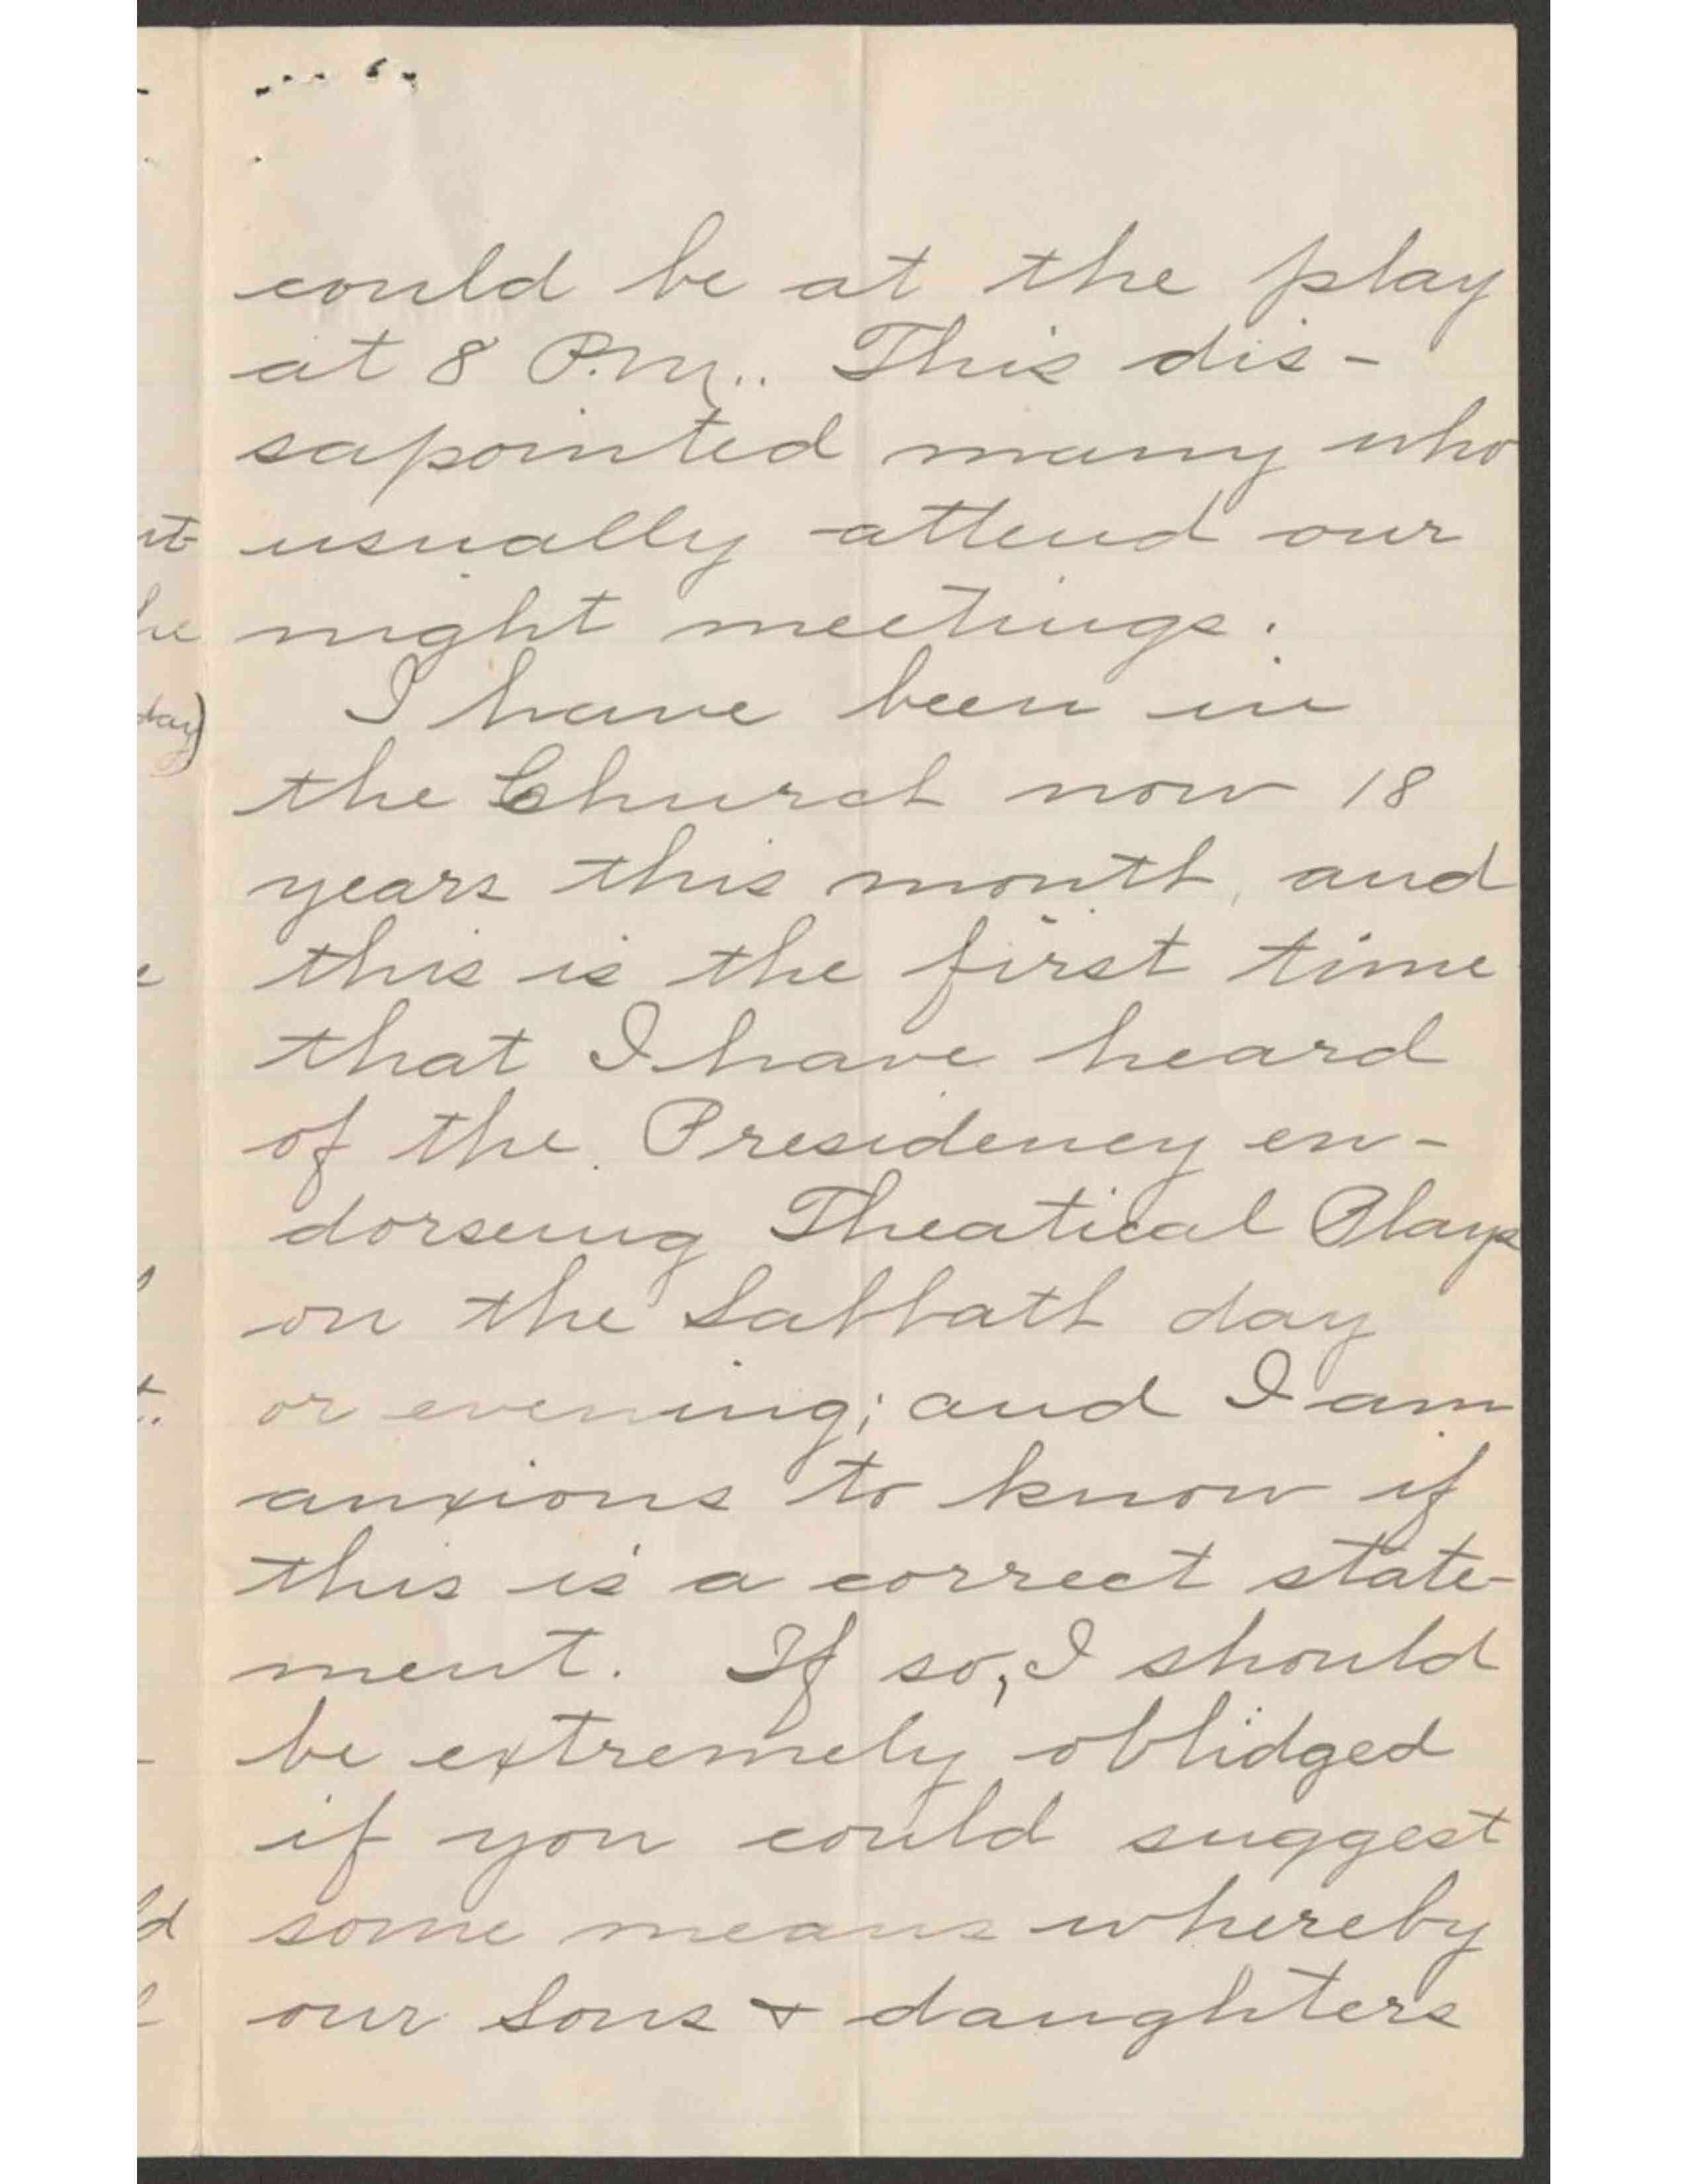 could be at the play
at 8 P.M.. This dis-
sapointed many who
usually attend our
night meetings.
I have been in
the Church now 18
years this month, and
this is the first time
that I have heard
of the Presidency en-
dorseing Theatical Plays
on the Sabbath day
or evening; and I am
anxious to know if
this is a correct state-
ment. If so, I should
be extremely oblidged
if you could suggest
some means whereby
our Sons & daughters